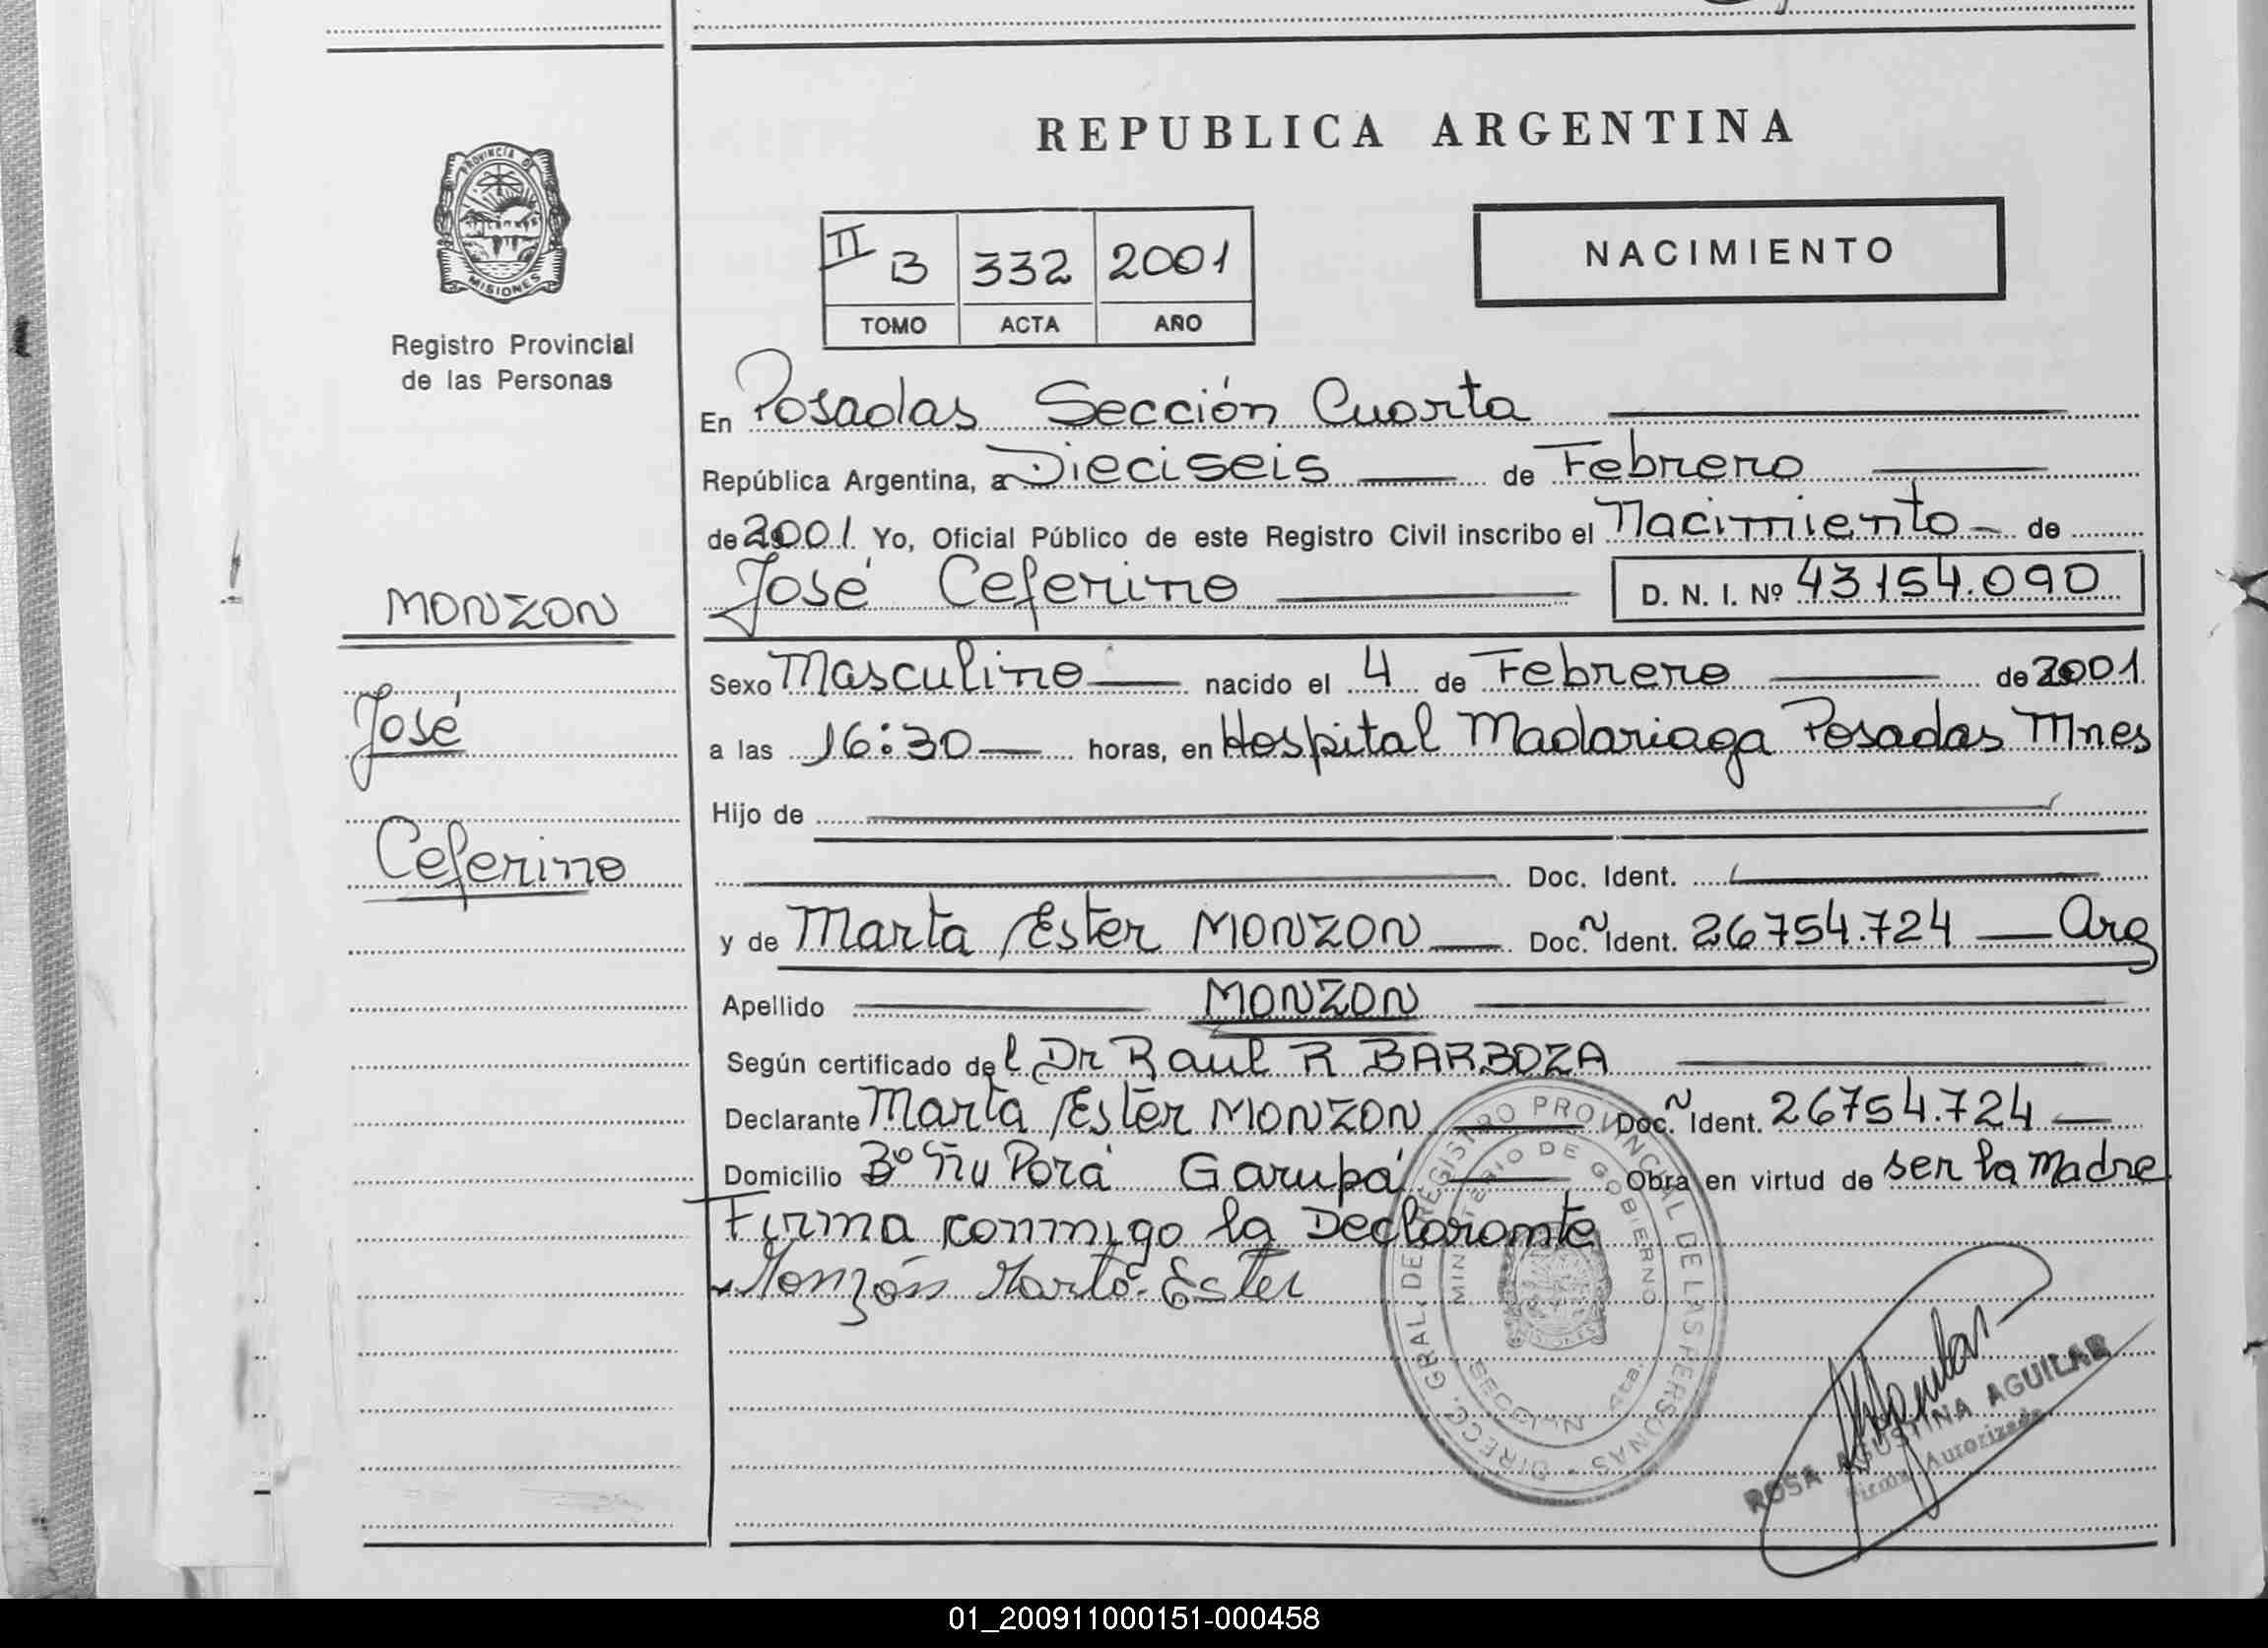 REPUBLICA ARGENTINA
PROVINCIA DE
MISIONES
Registro Provincial
de las Personas
II B 332 2001
TOMO ACTA AÑO
NACIMIENTO
En Posadas Sección Cuarta
República Argentina, a Dieciseis de Febrero
de 2001 Yo, Oficial Público de este Registro Civil inscribo el Nacimiento de
José Ceferino D. N. I. Nº 43154.090
MONZON
José
Ceferino
Sexo Masculino nacido el 4 de Febrero de 2001
a las 16:30 horas, en Hospital Madariaga Posadas Mnes
Hijo de
Doc. Ident.
y de Marta Ester MONZON Doc. Ident. 26754.724 Arg
Apellido MONZON
Según certificado del Dr Raul R BARBOZA
Declarante Marta Ester MONZON Doc. Ident. 26754.724
Domicilio Bº Ñu Porá Garupá Obra en virtud de ser la Madre
Firma conmigo la Declarante
Monzón Marta Ester
DIRECC. GRAL. DE REGISTRO PROVINCIAL DE LAS PERSONAS
MINISTERIO DE GOBIERNO
4ta.
ROSA AGUSTINA AGUILAR
Firma Autorizada
01_200911000151-000458